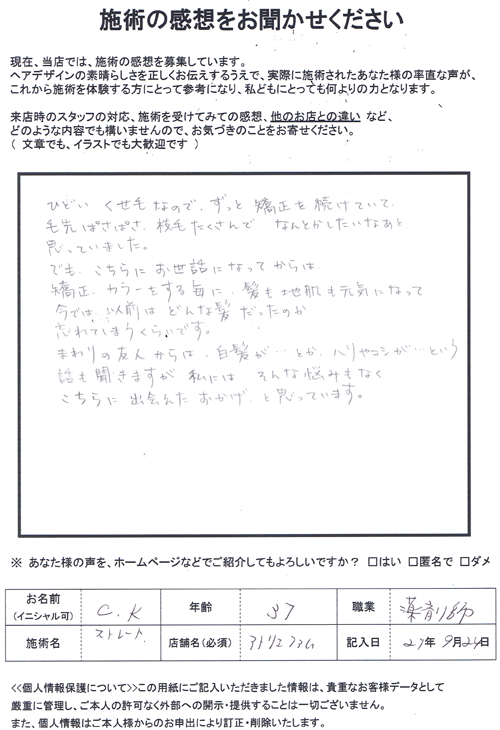 施術の感想をお聞かせください
現在、当店では、施術の感想を募集しています。
ヘアデザインの素晴らしさを正しくお伝えするうえで、実際に施術されたあなた様の率直な声が、
これから施術を体験する方にとって参考になり、私どもにとっても何よりの力となります。
来店時のスタッフの対応、施術を受けてみての感想、他のお店との違い など、
どのような内容でも構いませんので、お気づきのことをお寄せください。
( 文章でも、イラストでも大歓迎です )
ひどい くせ毛なので、ずっと 矯正を続けていて、
毛先ぱさぱさ、枝毛たくさんで なんとかしたいなあと
思っていました。
でも、こちらにお世話になってからは、
矯正、カラーをする毎に、髪も地肌も元気になって
今では、以前は どんな髪だったのか
忘れてしまうくらいです。
まわりの友人からは、白髪が…とか、ハリやコシが…という
話も聞きますが 私には そんな悩みもなく
こちらに 出会えた おかげ、と思っています。
※ あなた様の声を、ホームページなどでご紹介してもよろしいですか？ □はい □匿名で □ダメ
お名前 (イニシャル可) C.K 年齢 37 職業 薬剤師
施術名 ストレート 店舗名(必須) アトリエファム 記入日 27年 9月24日
<<個人情報保護について>>この用紙にご記入いただきました情報は、貴重なお客様データとして
厳重に管理し、ご本人の許可なく外部への開示・提供することは一切ございません。
また、個人情報はご本人様からのお申出により訂正・削除いたします。